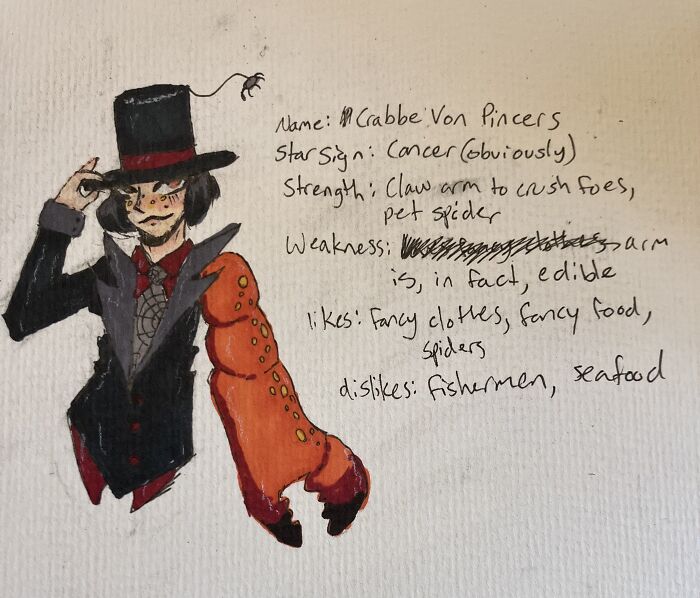 Name: Crabbe Von Pincers
Star Sign: Cancer (obviously)
Strength: Claw arm to crush foes,
pet spider
Weakness: arm
is, in fact, edible
likes: fancy clothes, fancy food,
spiders
dislikes: fishermen, seafood